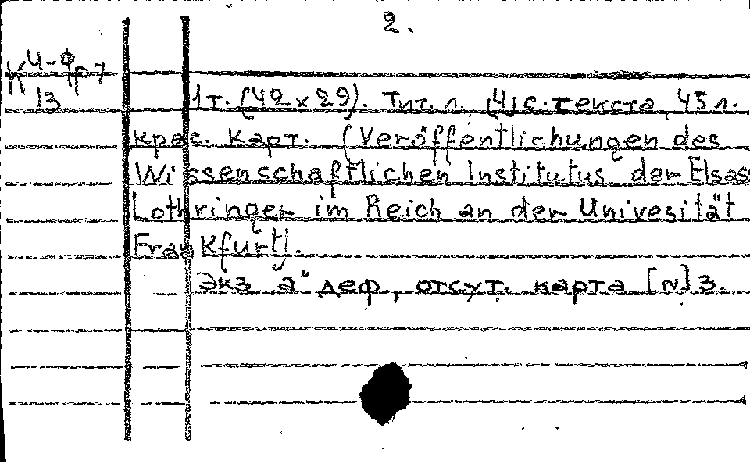 2.
К 4-Фр7
13
1 т. (42 x 29). Тит. л. (4) с. текста, 45 л.
крас. карт. (Veröffentlichungen des
Wissenschaftlichen Institutus der Elsass
Lothringer im Reich an der Univesität
Frankfurt).
Экз а" деф, отсут. карта [N] 3.